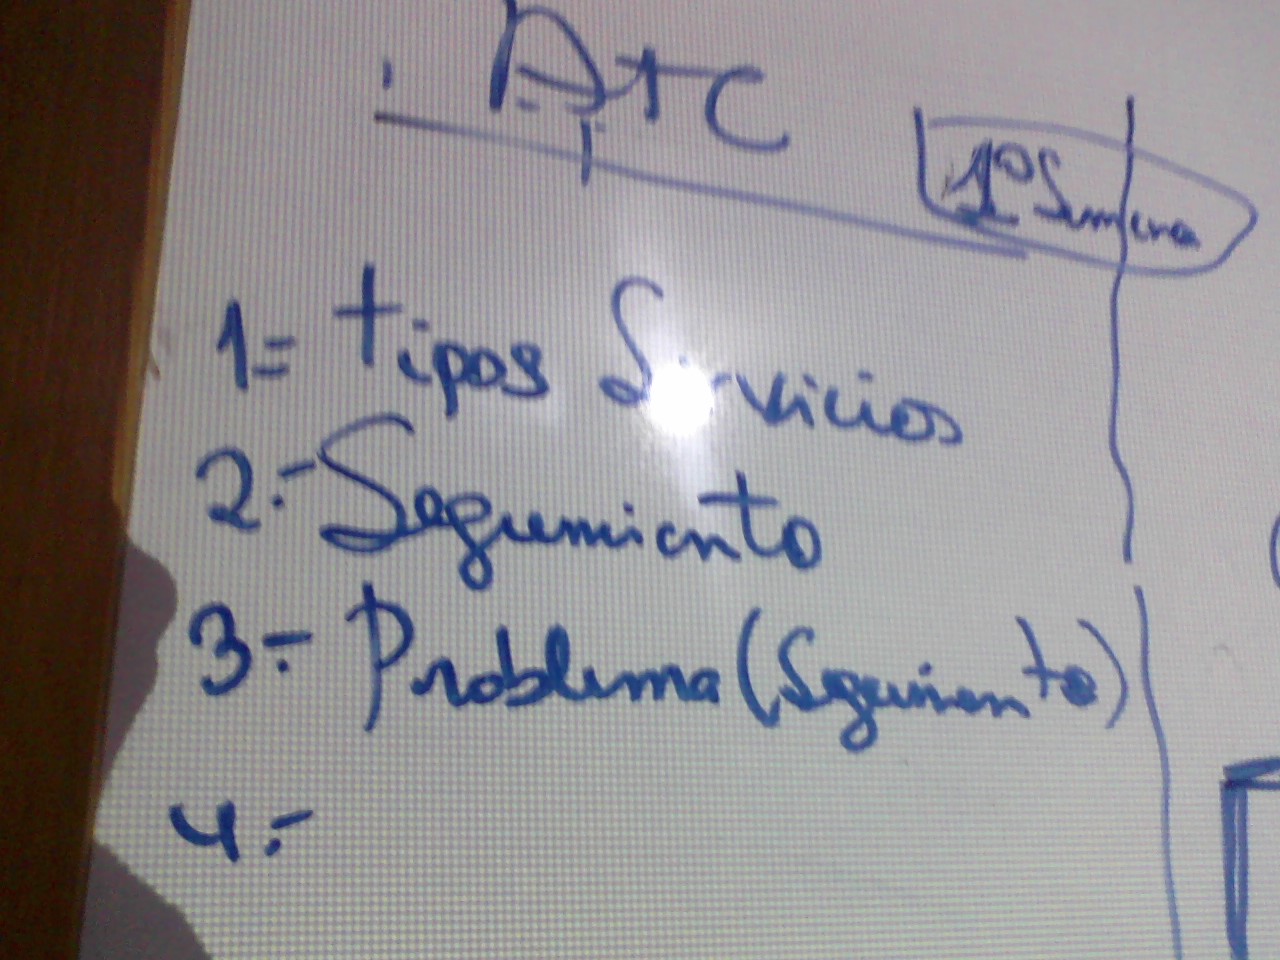 ATC
1º Semana
1= tipos Servicios
2.- Seguimiento
3.- Problema (Seguimiento)
4.-